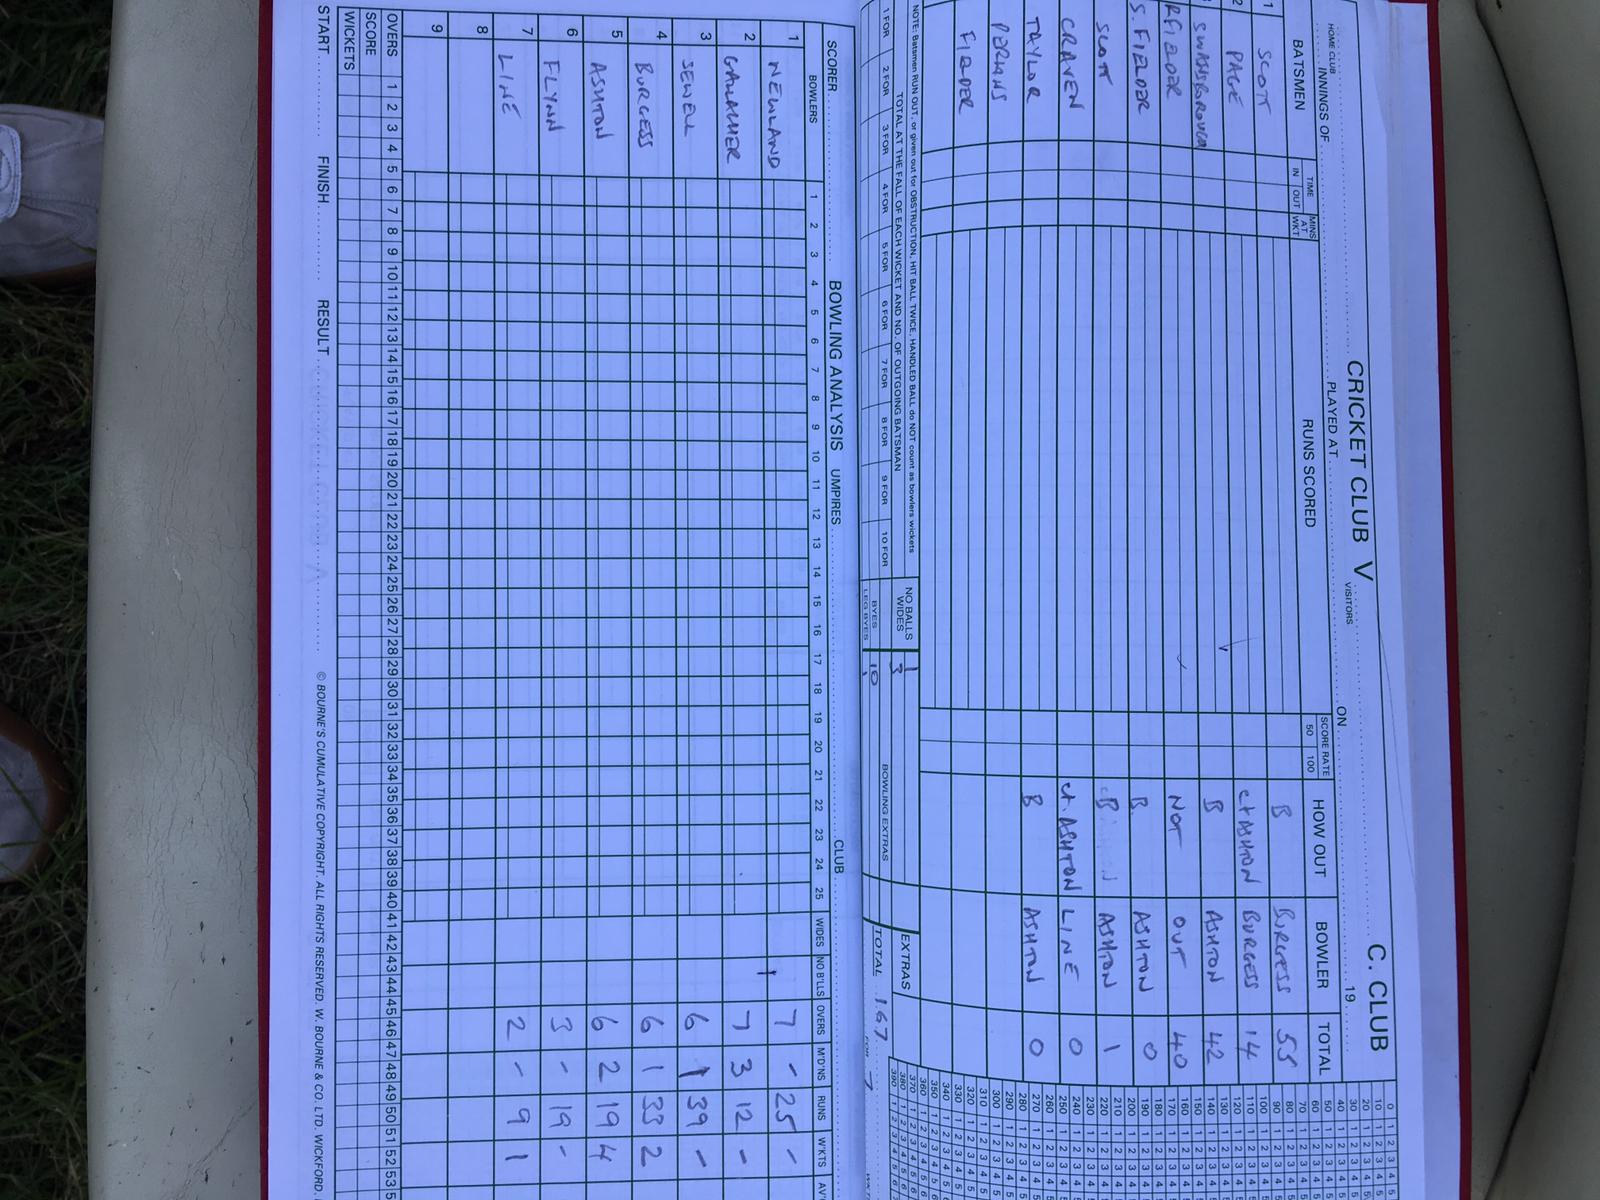 CRICKET CLUB V C. CLUB
HOME CLUB VISITORS
INNINGS OF PLAYED AT ON 19
BATSMEN TIME IN OUT MINS AT WKT RUNS SCORED SCORE RATE 50 100 HOW OUT BOWLER TOTAL
1 SCOTT B BURGESS 55
2 PAGE ct ASHTON BURGESS 14
SWANSBOROUGH B ASHTON 42
R FIELDER NOT OUT 40
S. FIELDER B. ASHTON 0
SCOTT B ASHTON 1
CRAVEN ct. ASHTON LINE 0
TAYLOR B ASHTON 0
PERKINS
FIELDER
NOTE: Batsmen RUN OUT, or given out for OBSTRUCTION, HIT BALL TWICE, HANDLED BALL do NOT count as bowlers wickets
TOTAL AT THE FALL OF EACH WICKET AND NO. OF OUTGOING BATSMAN
NO BALLS 1
WIDES 3
EXTRAS
1 FOR 2 FOR 3 FOR 4 FOR 5 FOR 6 FOR 7 FOR 8 FOR 9 FOR 10 FOR
BYES 10
LEG BYES
BOWLING EXTRAS
TOTAL 167
FOR 7
SCORER BOWLING ANALYSIS UMPIRES CLUB
BOWLERS 1 2 3 4 5 6 7 8 9 10 11 12 13 14 15 16 17 18 19 20 21 22 23 24 25 WIDES NO B'LLS OVERS M'D'NS RUNS WKTS
1 NEWLAND 1 7 - 25 -
2 GALLIMER 7 3 12 -
3 SEWELL 6 1 39 -
4 BURGESS 6 1 33 2
5 ASHTON 6 2 19 4
6 FLYNN 3 - 19 -
7 LINE 2 - 9 1
8
9
OVERS 1 2 3 4 5 6 7 8 9 10 11 12 13 14 15 16 17 18 19 20 21 22 23 24 25 26 27 28 29 30 31 32 33 34 35 36 37 38 39 40 41 42 43 44 45 46 47 48 49 50 51 52 53
SCORE
WICKETS
START FINISH RESULT © BOURNE'S CUMULATIVE COPYRIGHT. ALL RIGHTS RESERVED. W. BOURNE & CO. LTD. WICKFORD.